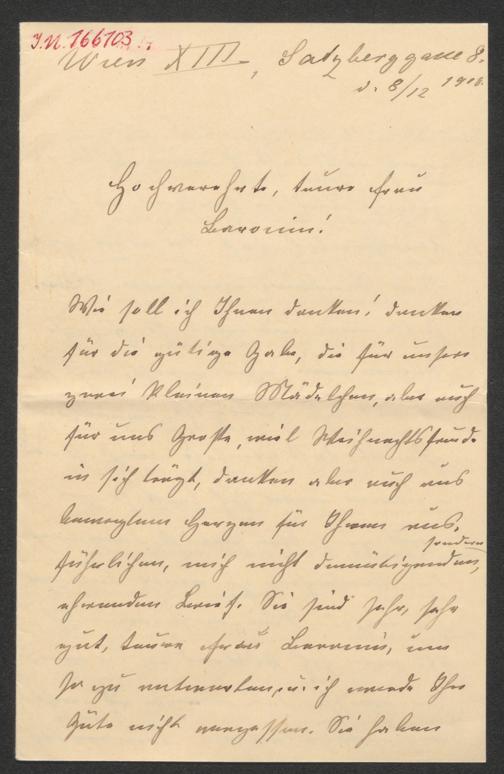 J.N. 166103
Wien XIII, Satzberggasse 8.
d. 8/12
Hochverehrte, teure Frau
Baronin!
Wie soll ich Ihnen danken! danken
für die gütige Gabe, die für unsere
zwei kleinen Mädelchen, aber auch
für uns Große, viel Weihnachtsfreude
in sich trägt, danken aber auch aus
bewegtem Herzen für Ihren aus-
führlichen, mich nicht demütigenden, sondern
ehrenden Brief. Sie sind sehr, sehr
gut, teure Frau Baronin, um
so zu antworten, u. ich werde Ihre
Güte nicht vergessen. Sie haben